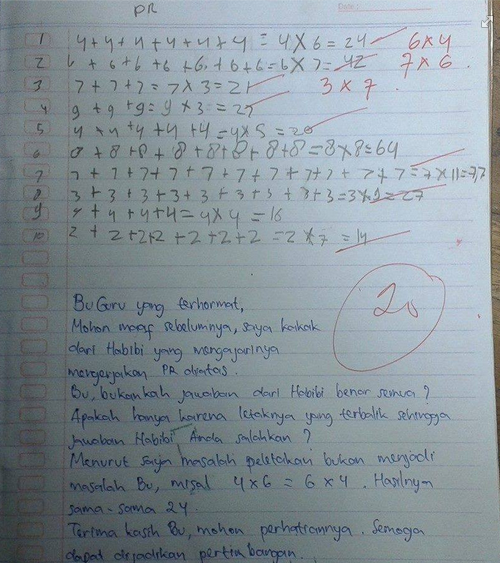 PR
1 4+4+4+4+4+4 = 4x6 = 24 6x4
2 6+6+6+6+6+6+6=6x7=42 7x6
3 7+7+7=7x3=21 3x7
4 9+9+9=9x3=27
5 4+4+4+4+4=4x5=20
6 8+8+8+8+8+8+8+8=8x8=64
7 7+7+7+7+7+7+7+7+7+7+7=7x11=77
8 3+3+3+3+3+3+3+3+3=3x9=27
9 4+4+4+4=4x4=16
10 2+2+2+2+2+2+2=2x7=14
20
Bu Guru yang terhormat,
Mohon maaf sebelumnya, saya kakak
dari Habibi yang mengajarinya
mengerjakan PR diatas.
Bu, bukankah jawaban dari Habibi benar semua?
Apakah hanya karena letaknya yang terbalik sehingga
jawaban Habibi Anda salahkan?
Menurut saya masalah peletakan bukan menjadi
masalah Bu, misal 4x6 = 6x4. Hasilnya
sama-sama 24.
Terima kasih Bu, mohon perhatiannya. Semoga
dapat dijadikan pertimbangan.